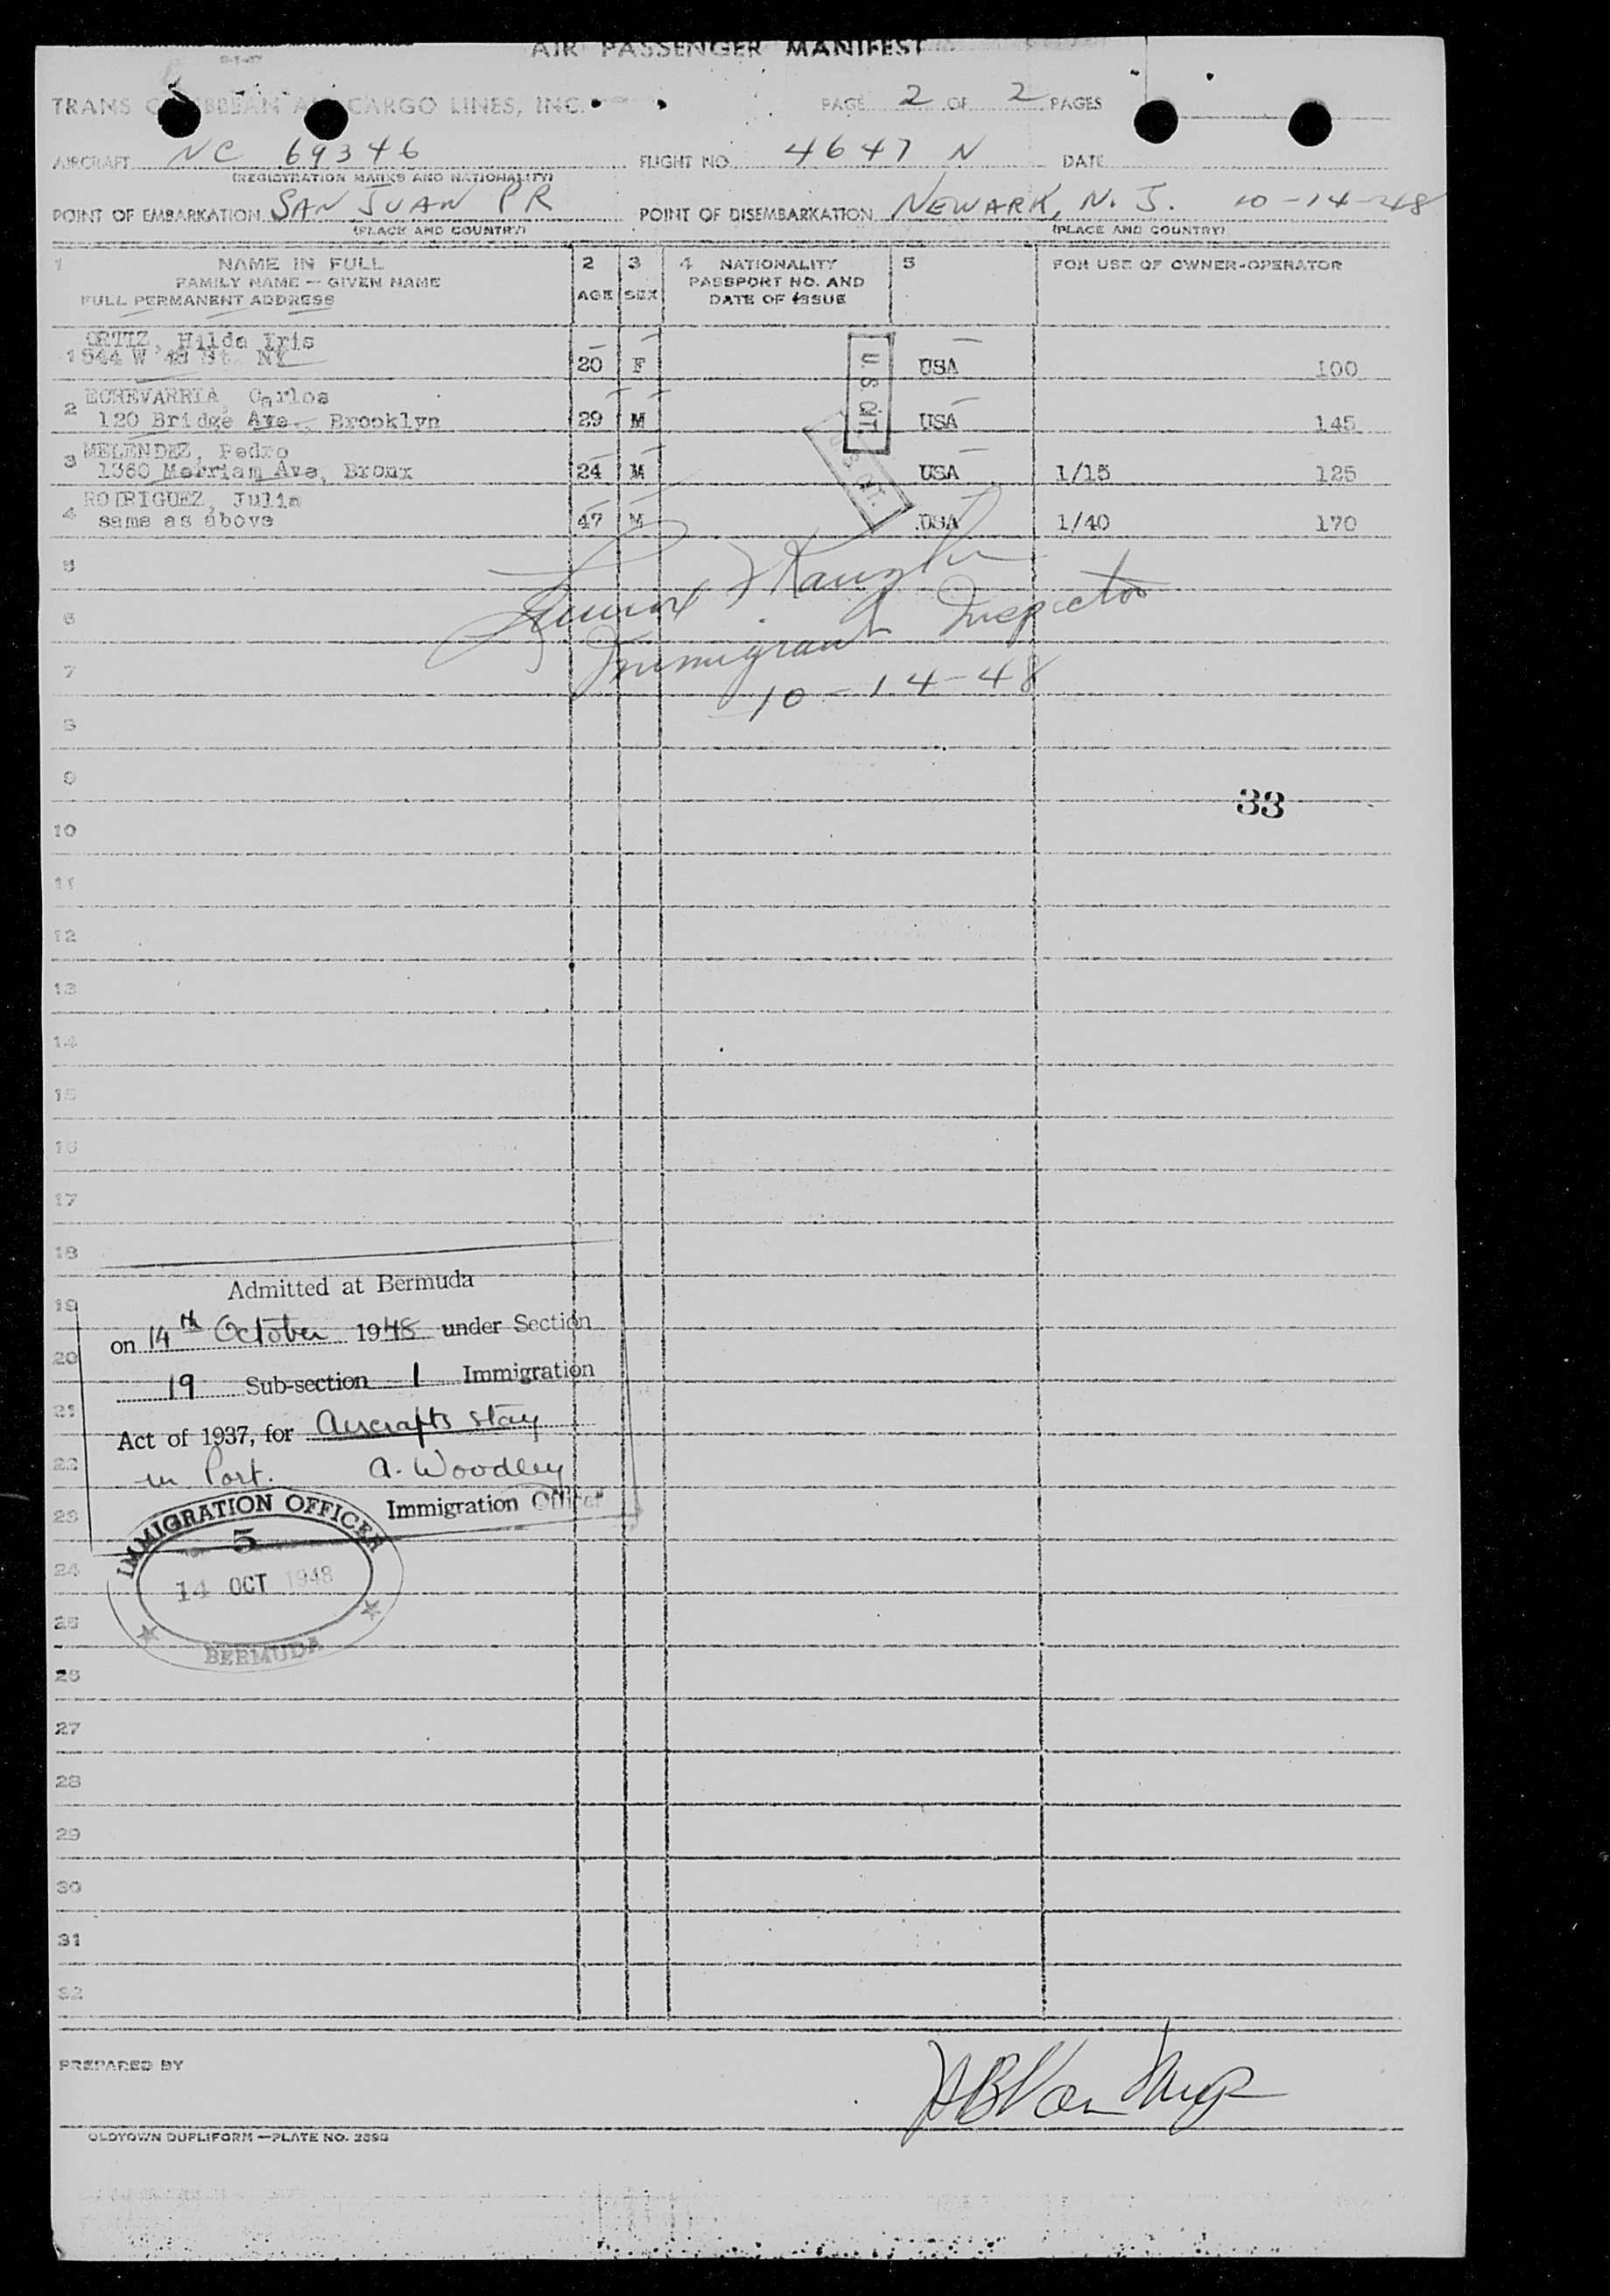 AIR PASSENGER MANIFEST
TRANS CARIBBEAN AIR CARGO LINES, INC.
PAGE 2 OF 2 PAGES
AIRCRAFT NC 69346 FLIGHT NO. 4647 N DATE
(REGISTRATION MARKS AND NATIONALITY)
POINT OF EMBARKATION SAN JUAN PR POINT OF DISEMBARKATION NEWARK, N. J. 10-14-48
(PLACE AND COUNTRY) (PLACE AND COUNTRY)
1 NAME IN FULL 2 3 4 NATIONALITY 5 FOR USE OF OWNER-OPERATOR
FAMILY NAME — GIVEN NAME PASSPORT NO. AND
FULL PERMANENT ADDRESS AGE SEX DATE OF ISSUE
ORTIZ, Hilda Iris
1 544 W 48 St. NY 20 F USA 100
U. S. CIT.
ECHEVARRIA, Carlos
2 120 Bridge Ave., Brooklyn 29 M USA 145
MELENDEZ, Pedro
3 1360 Merriam Ave, Bronx 24 M USA 1/15 125
U. S. CIT.
RODRIGUEZ, Julia
4 same as above 47 M USA 1/40 170
5
6 Immigrant Inspector
7 10-14-48
8
9
33
10
11
12
13
14
15
16
17
18
Admitted at Bermuda
19
on 14th October 1948 under Section
20
19 Sub-section 1 Immigration
21
Act of 1937, for Aircrafts stay
22 in Port. A. Woodley
23 Immigration Officer
IMMIGRATION OFFICER
5
24
14 OCT 1948
25
BERMUDA
26
27
28
29
30
31
32
PREPARED BY
OLDTOWN DUPLIFORM — PLATE NO.